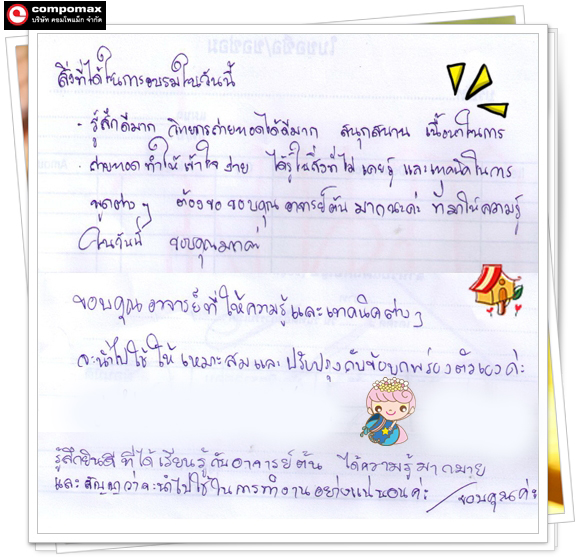 compomax
บริษัท คอมโพแม็ก จำกัด
ใบขอซื้อ/ขอซ่อม
สิ่งที่ได้ในการอบรมในวันนี้
- รู้สึกดีมาก วิทยากรถ่ายทอดได้ดีมาก สนุกสนาน เนื้อหาในการ
- ถ่ายทอด ทำให้เข้าใจง่าย ได้รู้ในสิ่งที่ไม่เคยรู้ และเทคนิคในการ
พูดต่างๆ ต้องขอขอบคุณ อาจารย์ต้น มากนะค่ะ ที่มาให้ความรู้
ในวันนี้ ขอบคุณมากค่ะ
ขอบคุณอาจารย์ที่ให้ความรู้และเทคนิคต่างๆ
จะนำไปใช้ให้เหมาะสมและปรับปรุงกับข้อบกพร่องตัวเองค่ะ
รู้สึกยินดีที่ได้เรียนรู้กับอาจารย์ต้น ได้ความรู้มากมาย
และสัญญาว่าจะนำไปใช้ในการทำงานอย่างแน่นอนค่ะ / ขอบคุณค่ะ